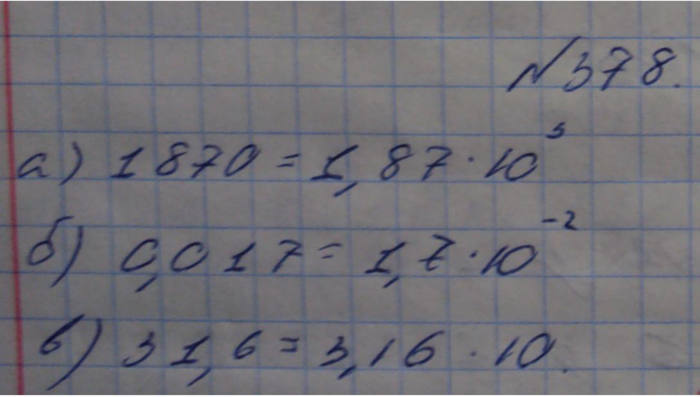 №378.
а) 1870 = 1,87 · 10³
б) 0,017 = 1,7 · 10⁻²
в) 31,6 = 3,16 · 10.